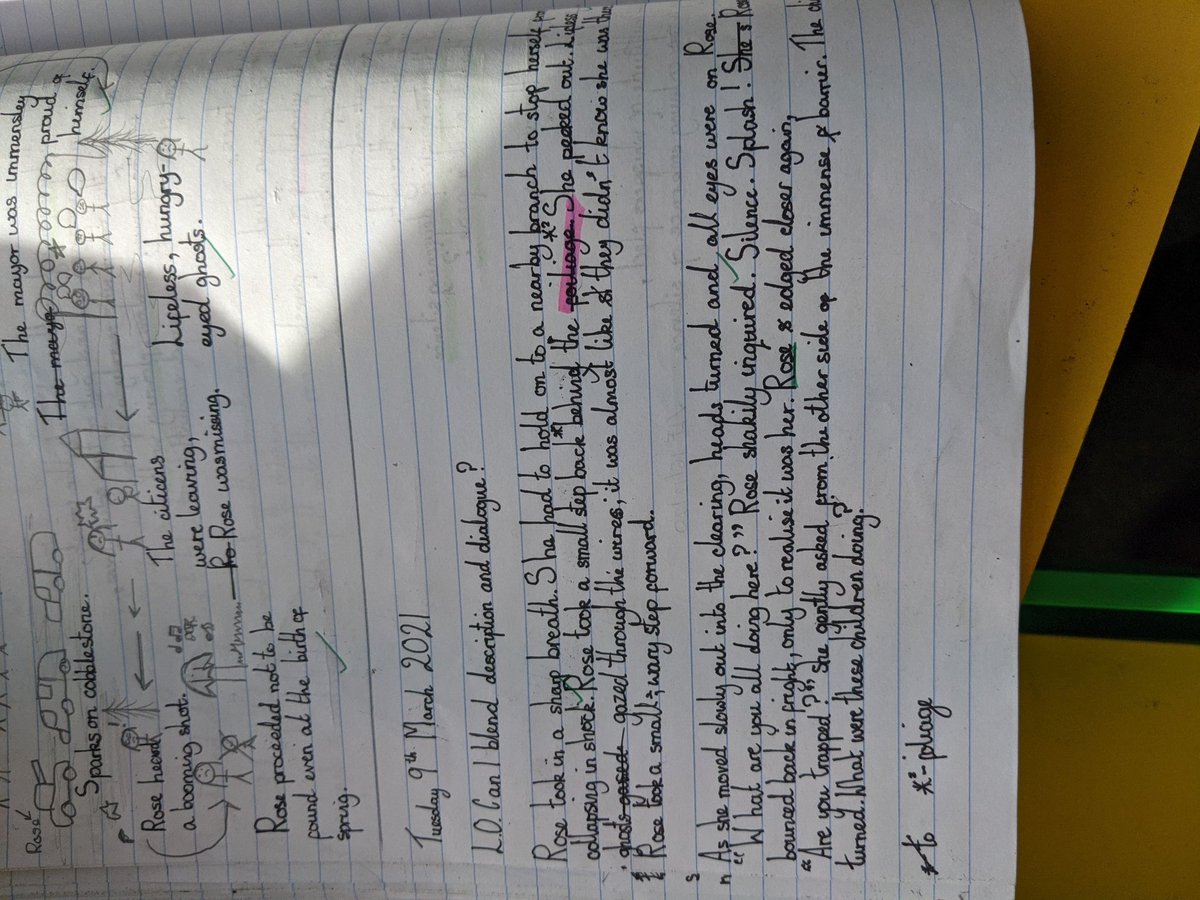 Rose
The mayor was immensley
The mayo proud of
himself.
Sparks on cobblestone.
Rose heard
a booming shot.
The citicens
were leaving,
Rose was missing.
Lifeless, hungry-
eyed ghosts.
Rose proceeded not to be
found even at the birth of
spring.
Tuesday 9th March 2021
L.O. Can I blend description and dialogue?
Rose took in a sharp breath. She had to hold on to a nearby branch to stop herself
collapsing in shock. Rose took a small step back behind the foiliage. She peeked out.
ghosts gazed gazed through the wires; it was almost like if they didn't know she was
Rose took a small, wary step forward.
As she moved slowly out into the clearing, heads turned and all eyes were on Rose.
"What are you all doing here?" Rose shakily inquired. Silence. Splash! She s
bounded back in fright, only to realise it was her. Rose edged closer again,
"Are you trapped?" She gently asked from the other side of the immense barrier. The
turned. What were these children doing?
to *²-foliage